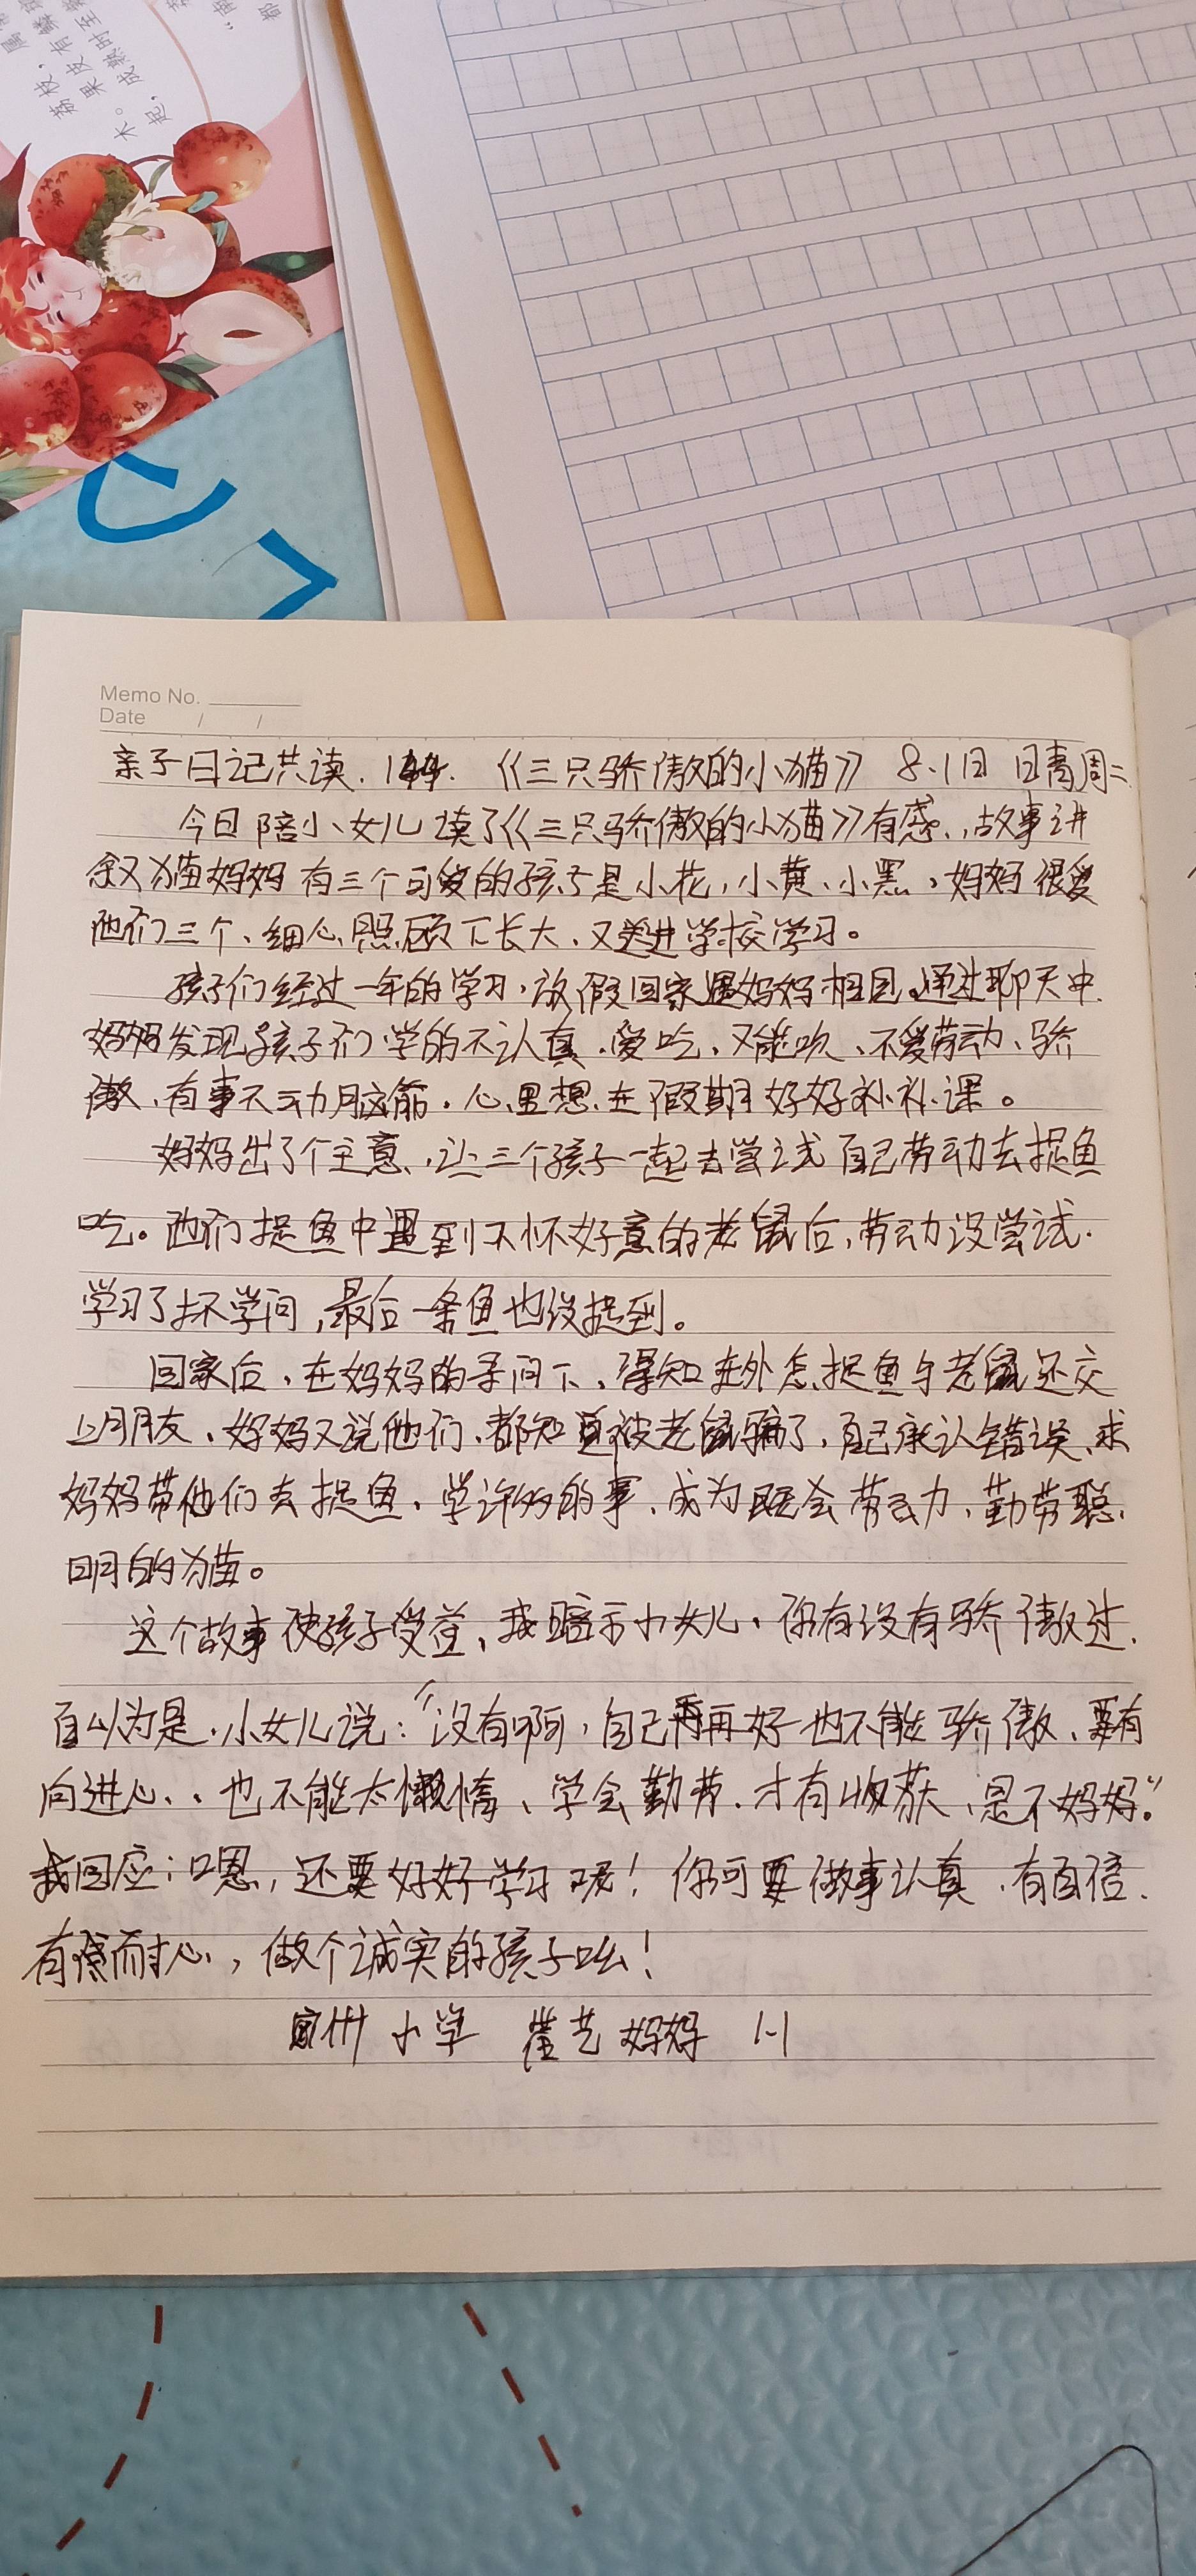 荔枝,
木。果皮有鳞
起,成熟时至
Memo No.
Date / /
亲子日记共读.144.《三只骄傲的小猫》 8.1日 晴周二
今日陪小女儿读了《三只骄傲的小猫》有感.,故事讲
叙猫妈妈有三个可爱的孩子是小花,小黄、小黑,妈妈很爱
他们三个、细心照顾下长大、又送进学校学习。
孩子们经过一年的学习,放假回家遇妈妈相见。通过聊天中.
妈妈发现孩子们学的不认真.爱吃、又能吹、不爱劳动、骄
傲、有事不动脑筋.心里想在假期好好补补课。
妈妈出了个主意,让三个孩子一起去尝试自己劳动去捉鱼
吃。他们捉鱼中遇到不怀好意的老鼠后,劳动没尝试.
学习了坏学问,最后一条鱼也没捉到。
回家后、在妈妈的寻问下、得知在外怎捉鱼与老鼠还交
上朋友、好妈又说他们、都知道被老鼠骗了,自己承认错误、求
妈妈带他们去捉鱼.学许多的事、成为既会劳动、勤劳聪、
明的猫。
这个故事使孩子受益、我暗示小女儿、你有没有骄傲过.
自以为是.小女儿说:“没有啊,自己再再好也不能骄傲、要有
向进心、.也不能太懒惰、学会勤劳.才有收获、是不妈妈。”
我回应:嗯,还要好好学习呢!你可要做事认真.有自信.
有耐心,做个诚实的孩子呦!
小学 艺妈妈 1-1